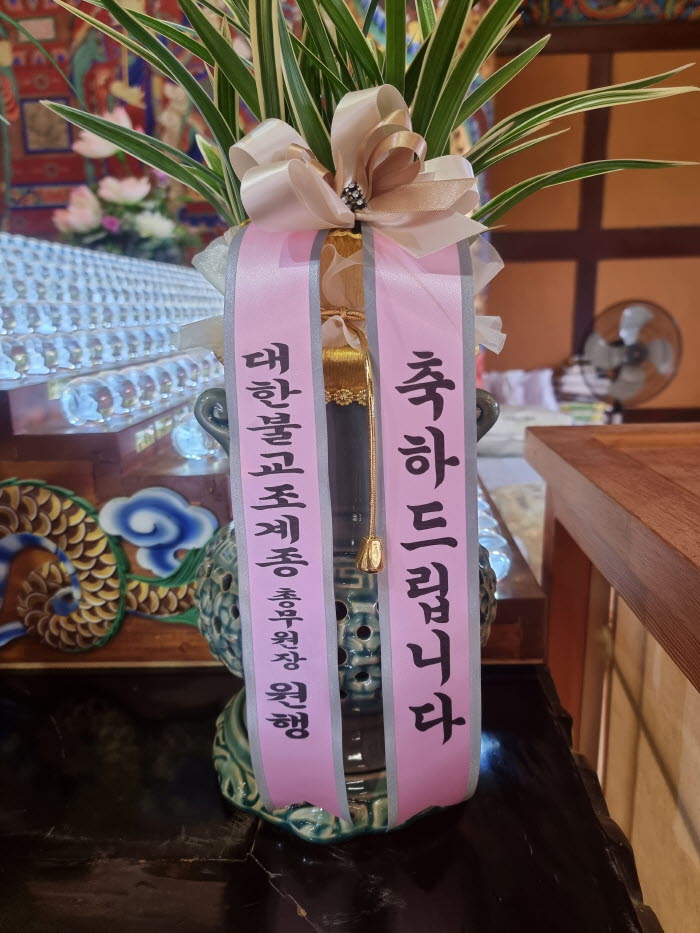 대한불교조계종 총무원장 원행
축하드립니다